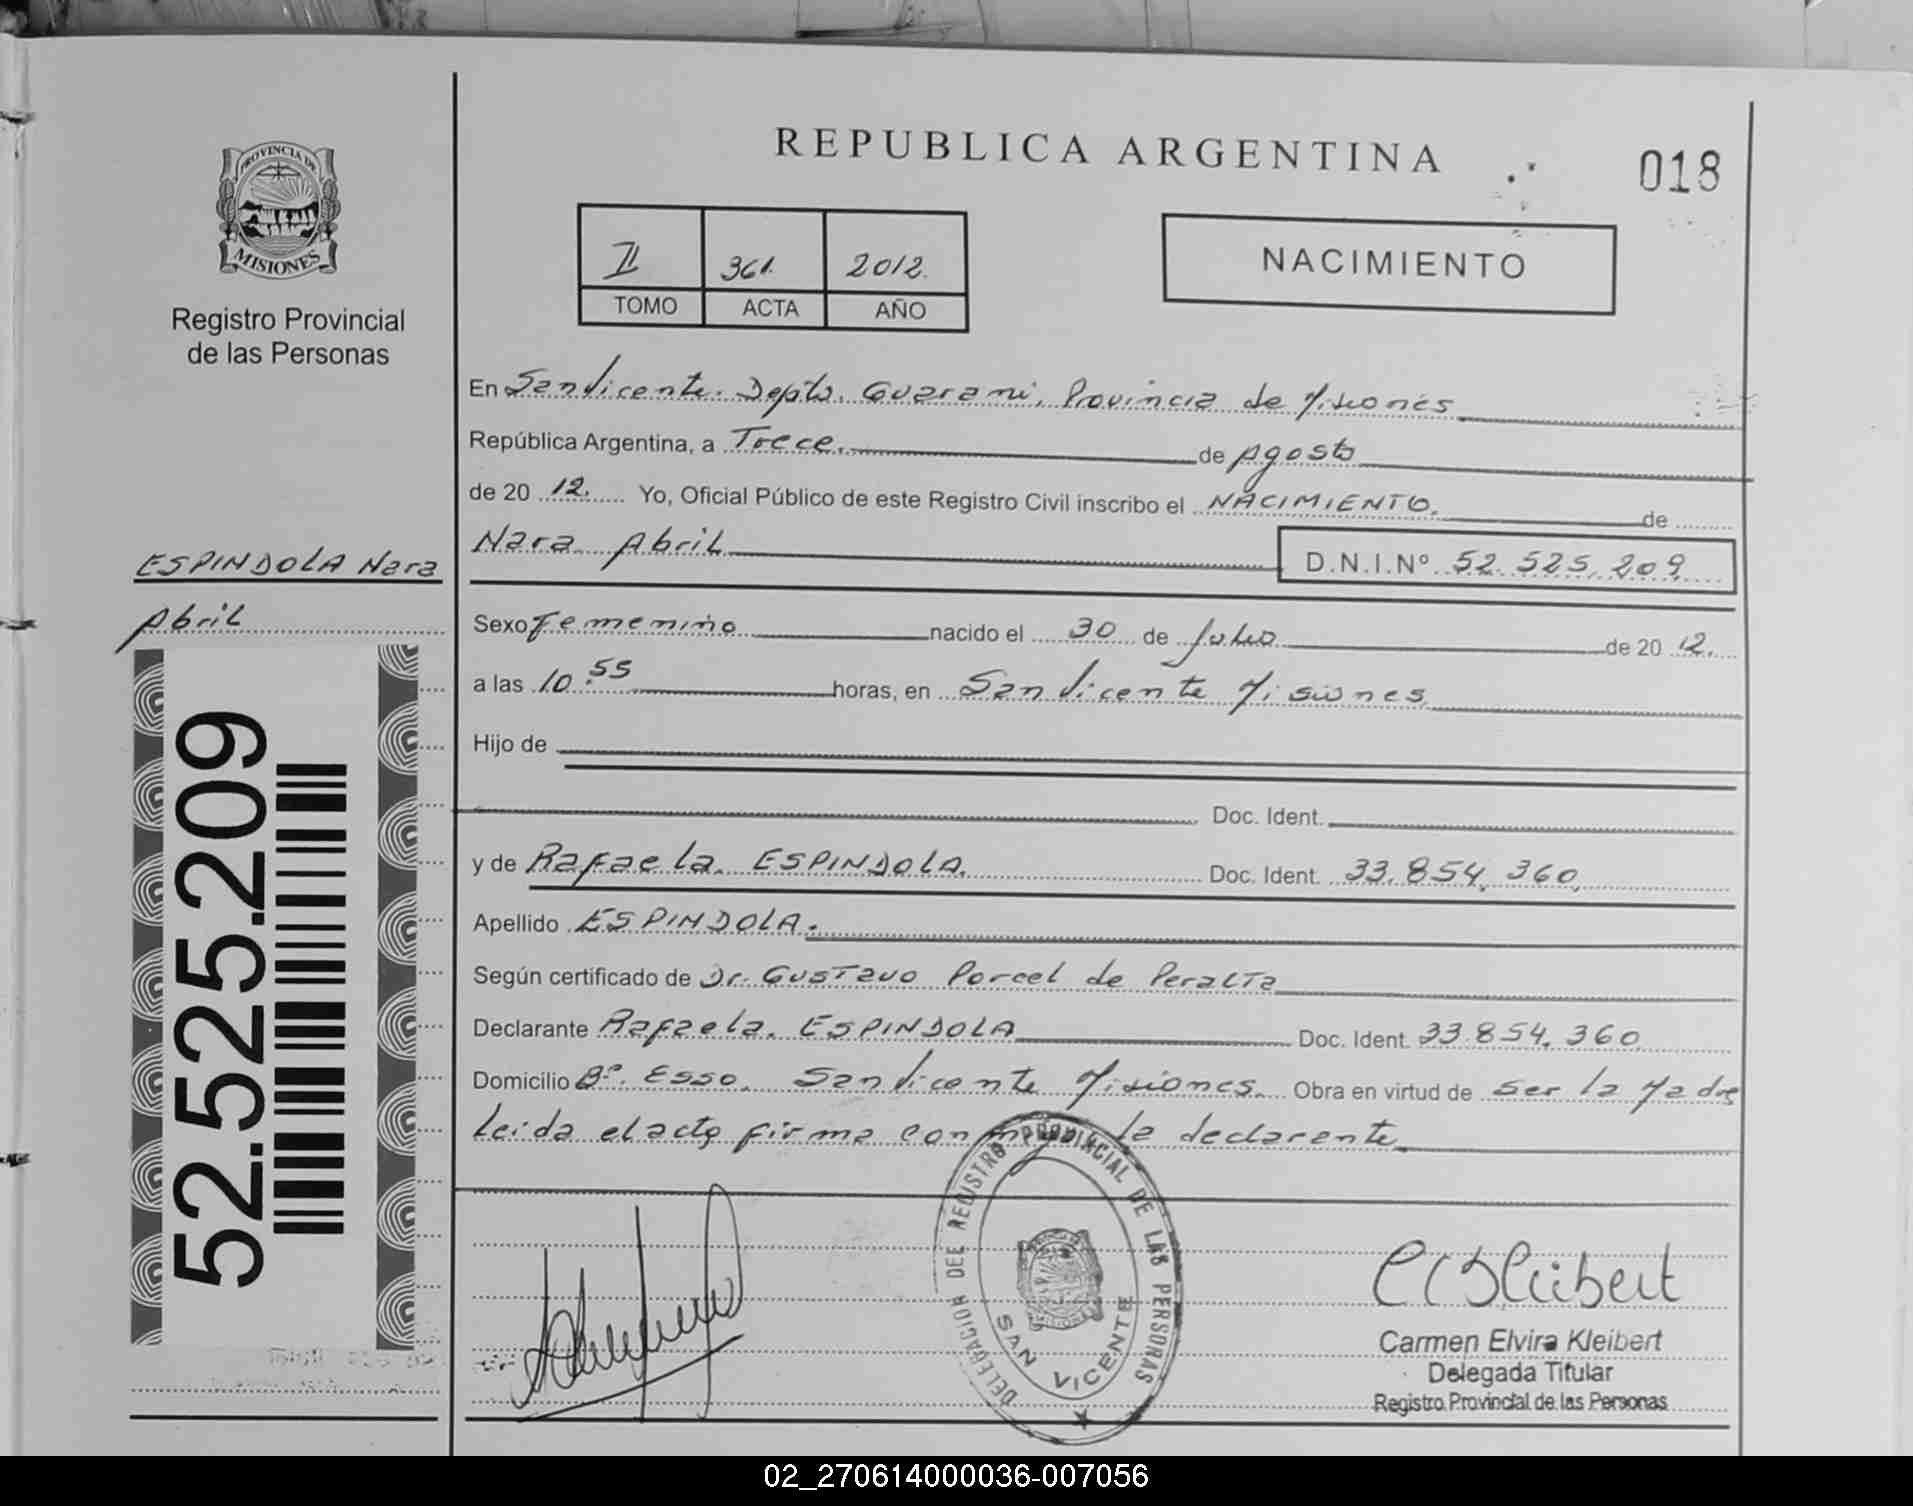 PROVINCIA DE
MISIONES
Registro Provincial
de las Personas
ESPINDOLA Nara
Abril
52.525.209
REPUBLICA ARGENTINA
018
II 361. 2012.
TOMO ACTA AÑO
NACIMIENTO
En San Vicente. Depto. Guarani, Provincia de Misiones
República Argentina, a Trece. de Agosto
de 20 12. Yo, Oficial Público de este Registro Civil inscribo el NACIMIENTO. de
Nara Abril D.N.I.Nº 52.525.209
Sexo Femenino nacido el 30 de Julio de 20 12.
a las 10:55 horas, en San Vicente Misiones
Hijo de
Doc. Ident.
y de Rafaela. ESPINDOLA. Doc. Ident. 33.854.360.
Apellido ESPINDOLA.
Según certificado de Dr. Gustavo Porcel de Peralta
Declarante Rafaela. ESPINDOLA Doc. Ident. 33.854.360
Domicilio Bº. Esso. San Vicente Misiones. Obra en virtud de ser la Madre
Leida el acta firma conmigo la declarante
DELEGACION DEL REGISTRO PROVINCIAL DE LAS PERSONAS
SAN VICENTE
Carmen Elvira Kleibert
Delegada Titular
Registro Provincial de las Personas
02_270614000036-007056